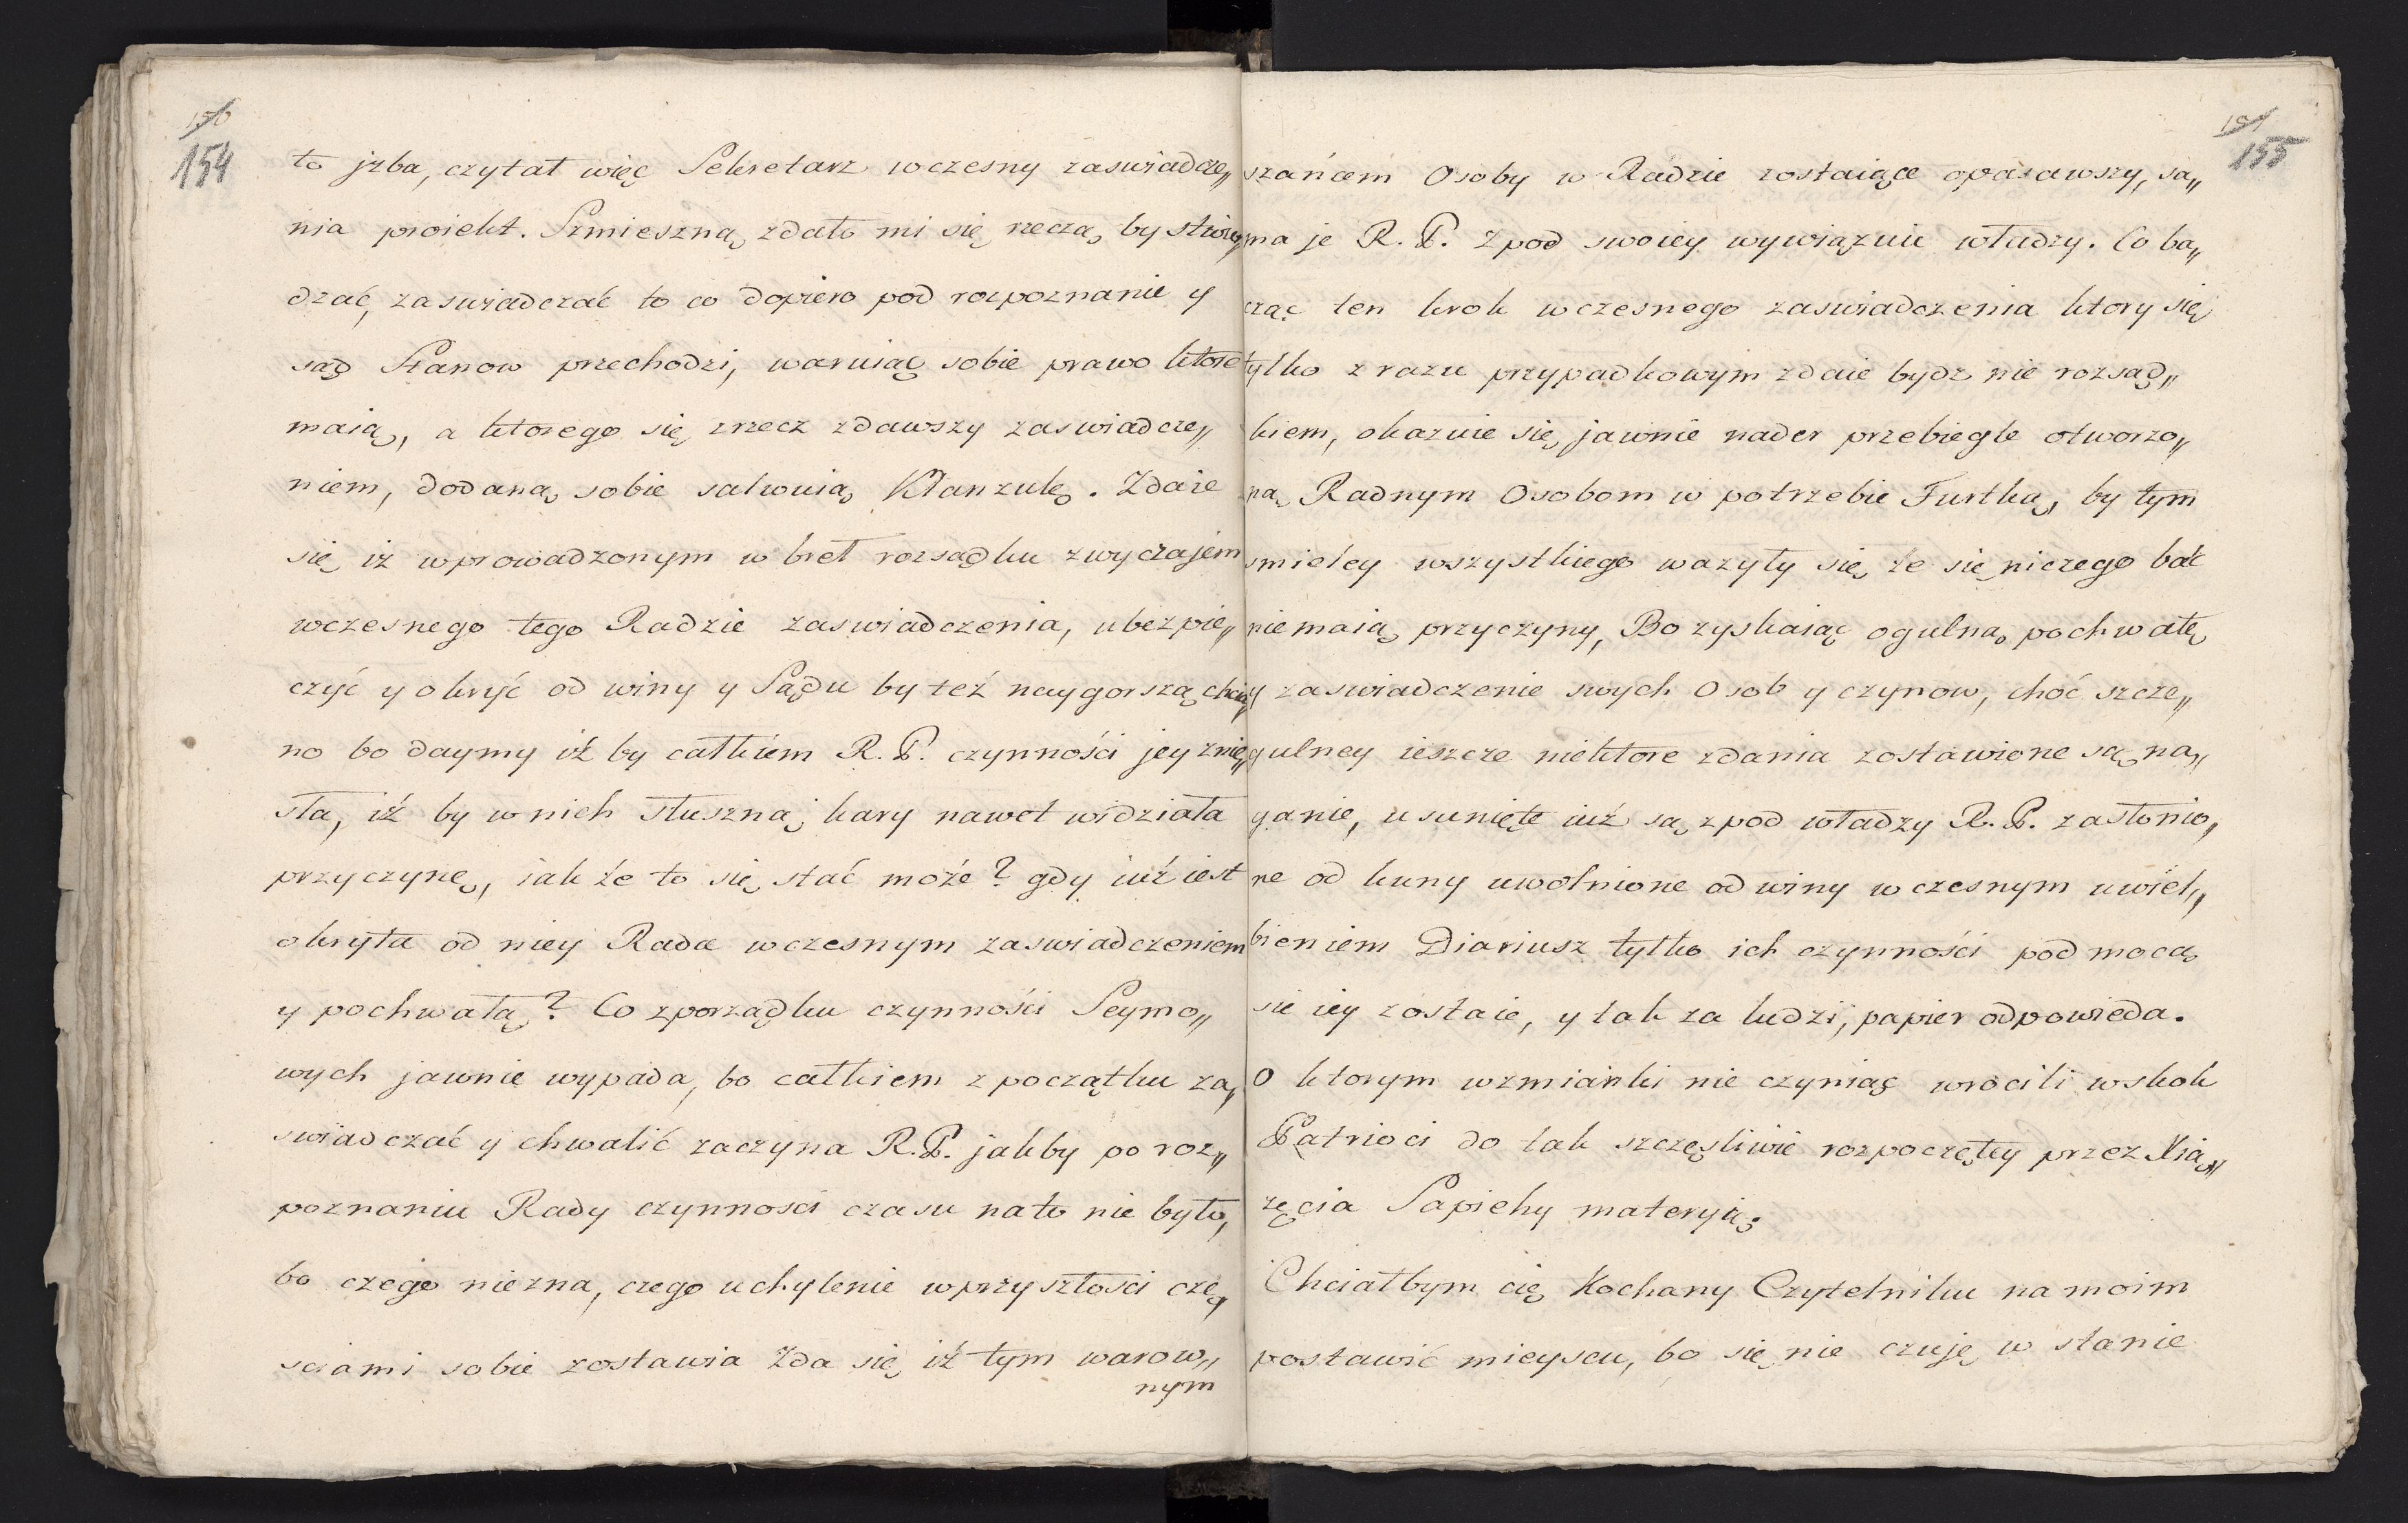 150
154
to jzba, czytał więc Sekretarz wczesny zaswiadcze„
nia proiekt. Szmieszną zdało mi się rzeczą, by stwier„
dzać, zaswiadczać to co dopiero pod rozpoznanie y
sąd Stanow przechodzi, waruiąc sobie prawo ktore
maią, a ktorego się zrzecz zdawszy zaswiadcze„
niem, dodaną sobie salwuią Klauzulę. Zdaie
się iż wprowadzonym w bret rozsądku zwyczajem
wczesnego tego Radzie zaswiadczenia, ubezpie„
czyć y okryć od winy y Sądu by też naygorszą chcia„
no bo daymy iż by całkiem R. P. czynności jey znie„
sła, iż by w nich słuszną kary nawet widziała
przyczynę, iak że to się stać może? gdy iuż iest
okryta od niey Rada wczesnym zaswiadczeniem
y pochwałą? Co z porządku czynności Seymo„
wych jawnie wypada, bo całkiem z początku za„
swiadczać y chwalić zaczyna R. P. jakby po roz„
poznaniu Rady czynnosci czasu nato nie było,
bo czego niezna, czego uchylenie w przyszłości czę„
sciami sobie zostawia Zda się iż tym warow„
nym
151
155
szańcem Osoby w Radzie zostaiące opasawszy, sa„
ma je R. P. Zpod swoiey wywiązuie władzy. Co ba„
cząc ten krok wczesnego zaswiadczenia ktory się
tylko z razu przypadkowym zdaie bydz nie rozsąd„
kiem, okazuie się jawnie nader przebiegle otworzo„
ną Radnym Osobom w potrzebie Furtką, by tym
smieley wszystkiego wazyły się, ze się niczego bać
nie maią przyczyny, Bo zyskaiąc ogulną pochwałę
y zaswiadczenie swych Osob y czynow, choć szcze„
gulney ieszcze niektore zdania zostawione są na„
ganie, usunięte iuż są z pod władzy R. P. zasłonio„
ne od kuny uwolnione od winy wczesnym uwiel„
bieniem Diariusz tylko ich czynności pod mocą
sie iey zostaie, y tak za ludzi, papier odpowieda.
O ktorym wzmianki nie czyniąc wrocili wskok
Patrioci do tak szczęsliwie rozpoczętey przez Xią„
zęcia Sapiehy materyi.
Chciałbym cię Kochany Czytelniku na moim
postawić mieyscu, bo się nie czuję w stanie